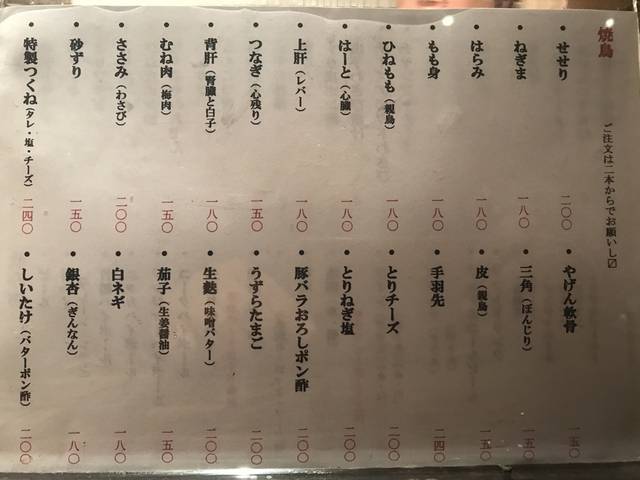 焼鳥
ご注文は二本からでお願いし〼
・せせり 二〇〇
・ねぎま 一八〇
・はらみ 一八〇
・もも身 一八〇
・ひねもも(親鳥) 一八〇
・はーと(心臓) 一八〇
・上肝(レバー) 一八〇
・つなぎ(心残り) 一五〇
・背肝(腎臓と白子) 一八〇
・むね肉(梅肉) 一五〇
・ささみ(わさび) 二〇〇
・砂ずり 一五〇
・特製つくね(タレ・塩・チーズ) 二四〇
・やげん軟骨 一五〇
・三角(ぼんじり) 一五〇
・皮(親鳥) 一五〇
・手羽先 二四〇
・とりチーズ 二〇〇
・とりねぎ塩 二〇〇
・豚バラおろしポン酢 二〇〇
・うずらたまご 二〇〇
・生麩(味噌バター) 二〇〇
・茄子(生姜醤油) 一五〇
・白ネギ 一八〇
・銀杏(ぎんなん) 一八〇
・しいたけ(バターポン酢) 二〇〇